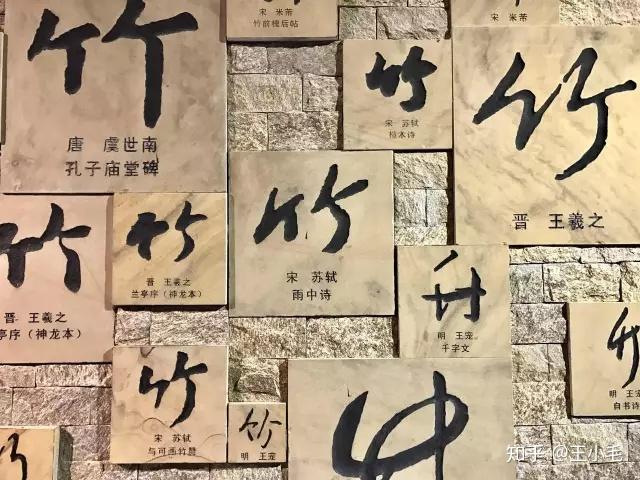 宋 米芾
竹前槐后帖
宋 米芾
竹
唐 虞世南
孔子庙堂碑
竹
宋 苏轼
竹
晋 王羲之
竹
晋 王羲之
亭序（神龙本）
竹
晋 王羲之
兰亭序（神龙本）
竹
宋 苏轼
雨中诗
竹
明 王宠
千字文
竹
明 王宠
自书诗
竹
宋 苏轼
与可画竹赞
竹
明 王宠
竹
知乎 @王小毛